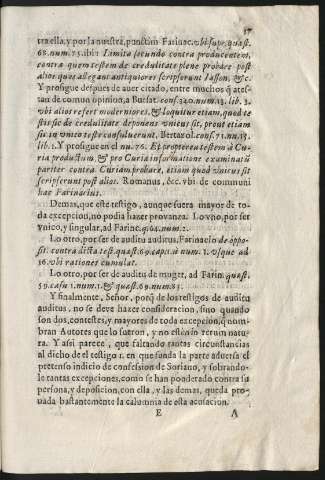 37
tra ella, y por la nuestra, punctim Farinac. vbi supr. quæst.
68. num. 75. ibi: Limita secundo contra producentem,
contra quem testem de credulitate plene probare post
alios quos allegant antiquiores scripserunt Iasson, &c.
Y prosigue despues de auer citado, entre muchos q̃ ates-
tan de comun opinion, a Bursat. cons. 340. num. 13. lib. 3.
vbi alios refert moderniores, & loquitur etiam, quod te
stis sit de credulitate deponens vnicus sit, prout etiam
sic in vnico teste consuluerunt. Bertazol. cons. 71. nu. 13.
lib. 1. Y prosigue en el nu. 76. Et propterea testem à Cu-
ria productum, & pro Curia informatione examinatũ
pariter contra Curiam probare, etiam quod vnicus sit
scripserunt post alios. Romanus, &c. vbi de communi
hæc Farinacius.
Demas, que este testigo, aunque fuera mayor de to-
da excepcion, no podia hazer prouanza. Lo vno, por ser
vnico, y singular, ad Farinc. q. 64. num. 2.
Lo otro, por ser de auditu auditus, Farinacio de oppo-
sit. contra dicta test. quæst. 69. cap. 1. à num. 1. vsque ad
36. vbi rationes cumulat.
Lo otro, por ser de auditu de muger, ad Farin. quæst.
59. casu 1. num. 1. & quæst. 69. num. 83.
Y finalmente, Señor, porq̃ de los testigos de auditu
auditus, no se deve hazer consideracion, sino quando
son dos, contestes, y mayores de toda excepcion, q̃ nom-
bran Autores que lo fueron, y no estèn in rerum natu-
ra. Y assi parece, que faltando tantas circunstancias
al dicho de el testigo 1. en que funda la parte aduersa el
pretenso indicio de confession de Soriano, y sobrando-
le tantas excepciones, como se han ponderado contra su
persona, y deposicion, con ella, y las demas, queda pro-
uada bastantemente la calumnia de esta acusacion.
E A